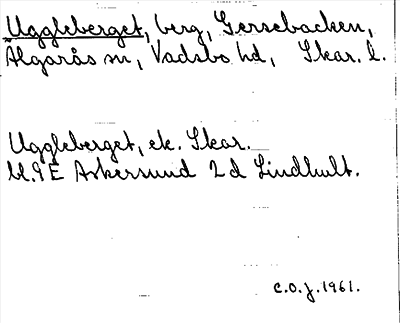 Uggleberget, berg, Gersebacken,
Älgarås sn, Vadsbo hd, Skar. l.
Uggleberget, ek. Skar.
bl. 9E Askersund 2d Lindhult.
C.O.J. 1961.